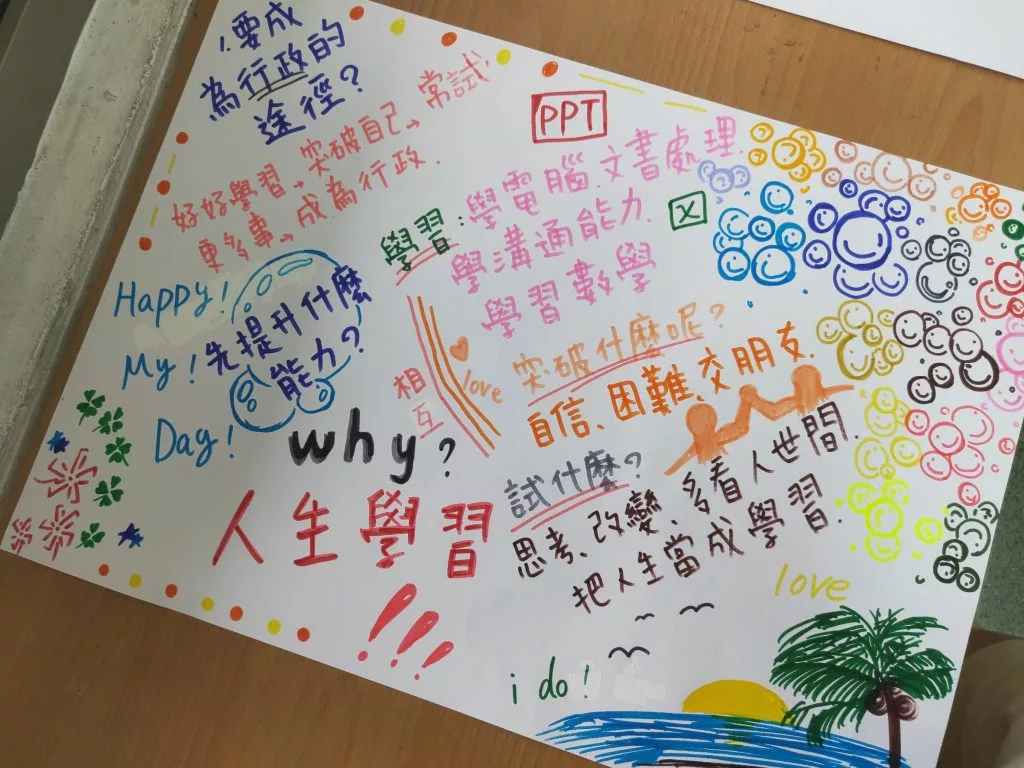 要成
為行政的
途徑?
好好學習、突破自己、常試
更多事、成為行政.
PPT
學習:學電腦.文書處理
學溝通能力.
學習數學
X
Happy!
My!
Day!
先提升什麼
能力?
相
互
love
突破什麼呢?
自信、困難、交朋友.
why?
試什麼?
思考、改變、多看人世間.
把人生當成學習.
人生學習
!!!
love
i do!